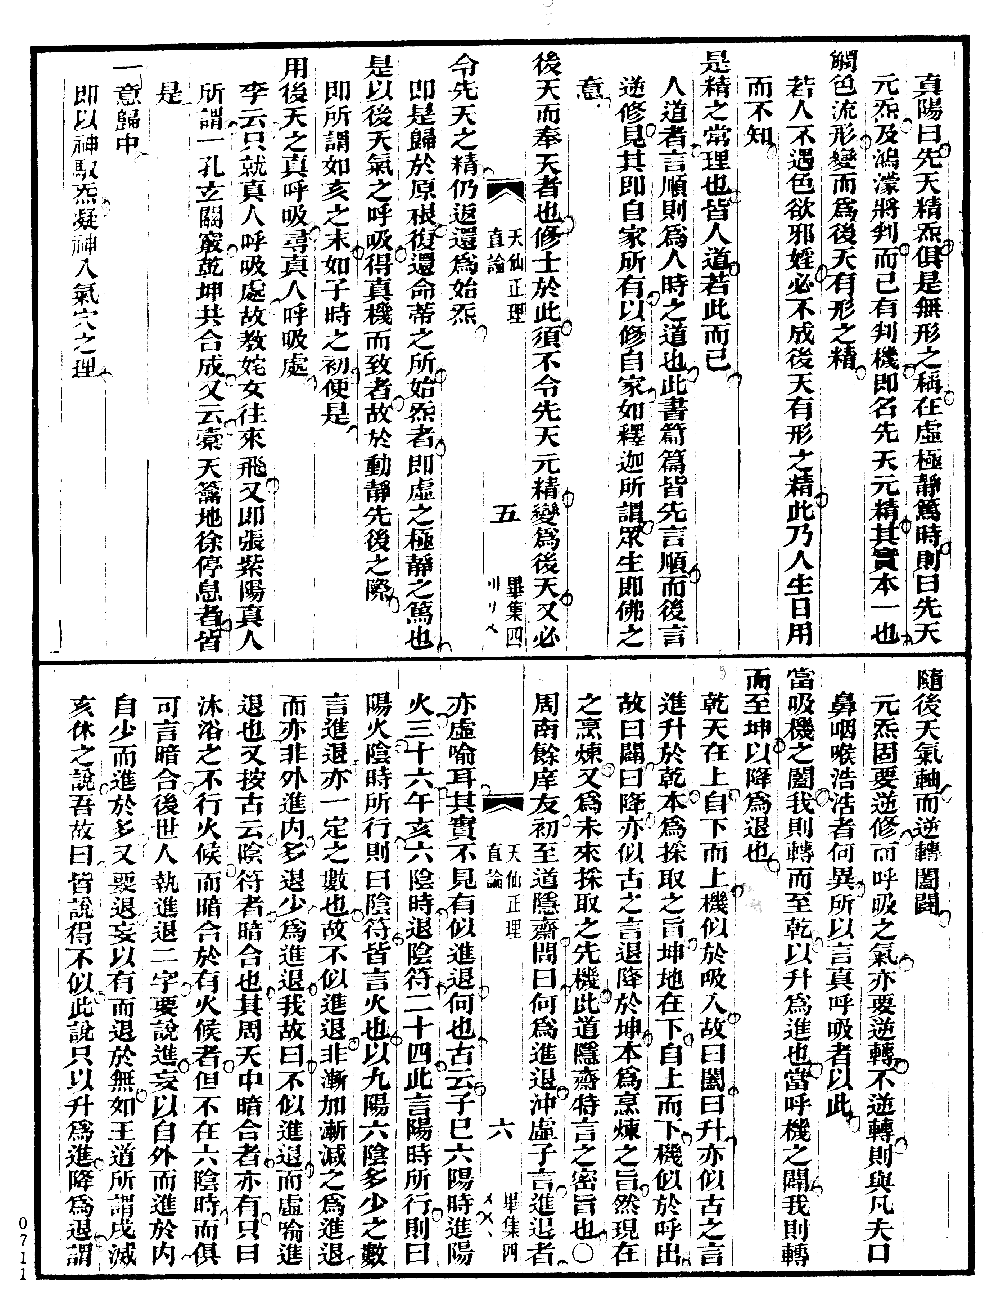 真陽曰先天精炁俱是無形之稱在虛極靜篤時則曰先天
元炁及鴻濛將判而已有判機即名先天元精其實本一也
觸色流形變而爲後天有形之精
若人不遇色欲邪婬必不成後天有形之精此乃人生日用
而不知
是精之常理也皆人道若此而已
人道者言順則爲人時之道也此書篇篇皆先言順而後言
逆修見其即自家所有以修自家如釋迦所謂眾生即佛之
意
後天而奉天者也修士於此須不令先天元精變爲後天又必
天仙正理
直論
五
畢集四
令先天之精仍返還爲始炁
即是歸於原根復還命蒂之所始炁者即虛之極靜之篤也
是以後天氣之呼吸得真機而致者故於動靜先後之際
即所謂如亥之末如子時之初便是
用後天之真呼吸尋真人呼吸處
李云只就真人呼吸處故教姹女往來飛又即張紫陽真人
所謂一孔玄關竅乾坤共合成又云橐天籥地徐停息者皆
是
一意歸中
即以神馭炁凝神入氣穴之理
隨後天氣軸而逆轉闔闢
元炁固要逆修而呼吸之氣亦要逆轉不逆轉則與凡夫口
鼻咽喉浩浩者何異所以言真呼吸者以此
當吸機之闔我則轉而至乾以升爲進也當呼機之闢我則轉
而至坤以降爲退也
乾天在上自下而上機似於吸入故曰闔曰升亦似古之言
進升於乾本爲採取之旨坤地在下自上而下機似於呼出
故曰闢曰降亦似古之言退降於坤本爲烹煉之旨然現在
之烹煉又爲未來採取之先機此道隱齋特言之密旨也○
周南餘庠友初至道隱齋問曰何爲進退沖虛子言進退者
天仙正理
直論
六
畢集四
亦虛喻耳其實不見有似進退何也古云子巳六陽時進陽
火三十六午亥六陰時退陰符二十四此言陽時所行則曰
陽火陰時所行則曰陰符皆言火也以九陽六陰多少之數
言進退亦一定之數也故不似進退非漸加漸減之爲進退
而亦非外進內多退少爲進退我故曰不似進退而虛喻進
退也又按古云陰符者暗合也其周天中暗合者亦有只曰
沐浴之不行火候而暗合於有火候者但不在六陰時而俱
可言暗合後世人執進退二字要說進妄以自外而進於內
自少而進於多又要退妄以有而退於無如王道所謂戌減
亥休之說吾故曰皆說得不似此說只以升爲進降爲退謂
0711